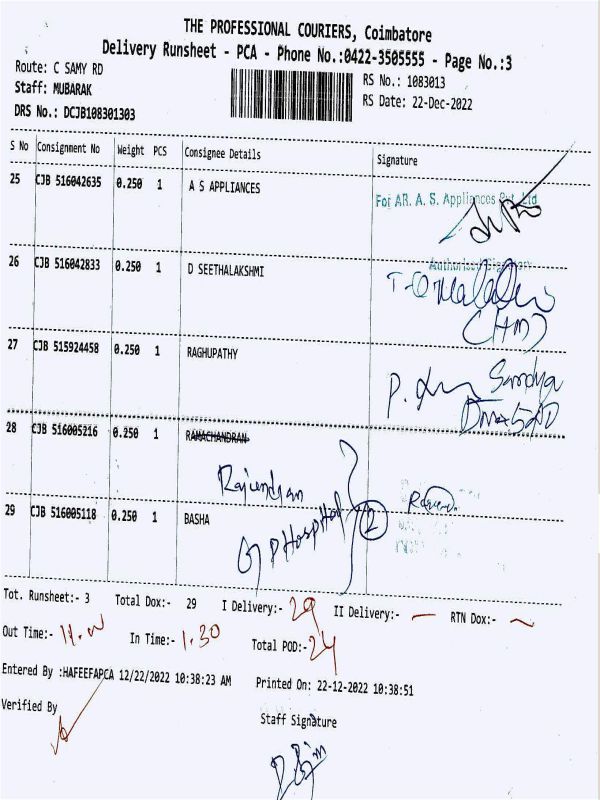 THE PROFESSIONAL COURIERS, Coimbatore
Delivery Runsheet - PCA - Phone No.:0422-3505555 - Page No.:3
Route: C SAMY RD
RS No.: 1083013
Staff: MUBARAK
RS Date: 22-Dec-2022
DRS No.: DCJB108301303
S No Consignment No Weight PCS Consignee Details Signature
25 CJB 516042635 0.250 1 A S APPLIANCES
For AR. A. S. Appliances Pvt. Ltd
26 CJB 516042833 0.250 1 D SEETHALAKSHMI
(HM)
27 CJB 515924458 0.250 1 RAGHUPATHY
Sandya
28 CJB 516005216 0.250 1 RAMACHANDRAN
Rajendran
G P Hospital 2
29 CJB 516005118 0.250 1 BASHA
Tot. Runsheet:- 3 Total Dox:- 29 I Delivery:- 29 II Delivery:- — RTN Dox:- ~
Out Time:- In Time:- 1.30 Total POD:- 24
Entered By :HAFEEFAPCA 12/22/2022 10:38:23 AM Printed On: 22-12-2022 10:38:51
Verified By
Staff Signature